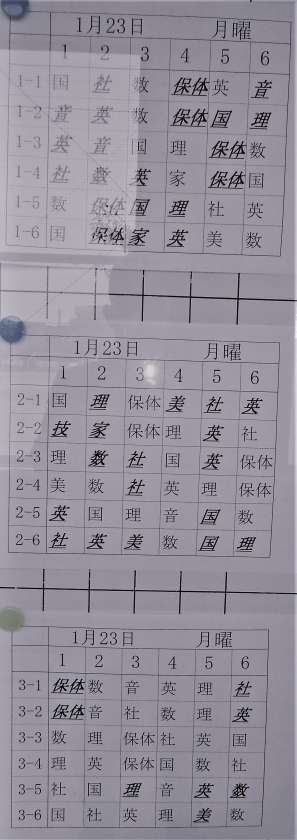 1月23日 月曜
1 2 3 4 5 6
1-1 国 社 数 保体 英 音
1-2 音 英 数 保体 国 理
1-3 英 音 国 理 保体 数
1-4 社 数 英 家 保体 国
1-5 数 保体 国 理 社 英
1-6 国 保体 家 英 美 数
1月23日 月曜
1 2 3 4 5 6
2-1 国 理 保体 美 社 英
2-2 技 家 保体 理 英 社
2-3 理 数 社 国 英 保体
2-4 美 数 社 英 理 保体
2-5 英 国 理 音 国 数
2-6 社 英 美 数 国 理
1月23日 月曜
1 2 3 4 5 6
3-1 保体 数 音 英 理 社
3-2 保体 音 社 数 理 英
3-3 数 理 保体 社 英 国
3-4 理 英 保体 国 数 社
3-5 社 国 理 音 英 数
3-6 国 社 英 理 美 数